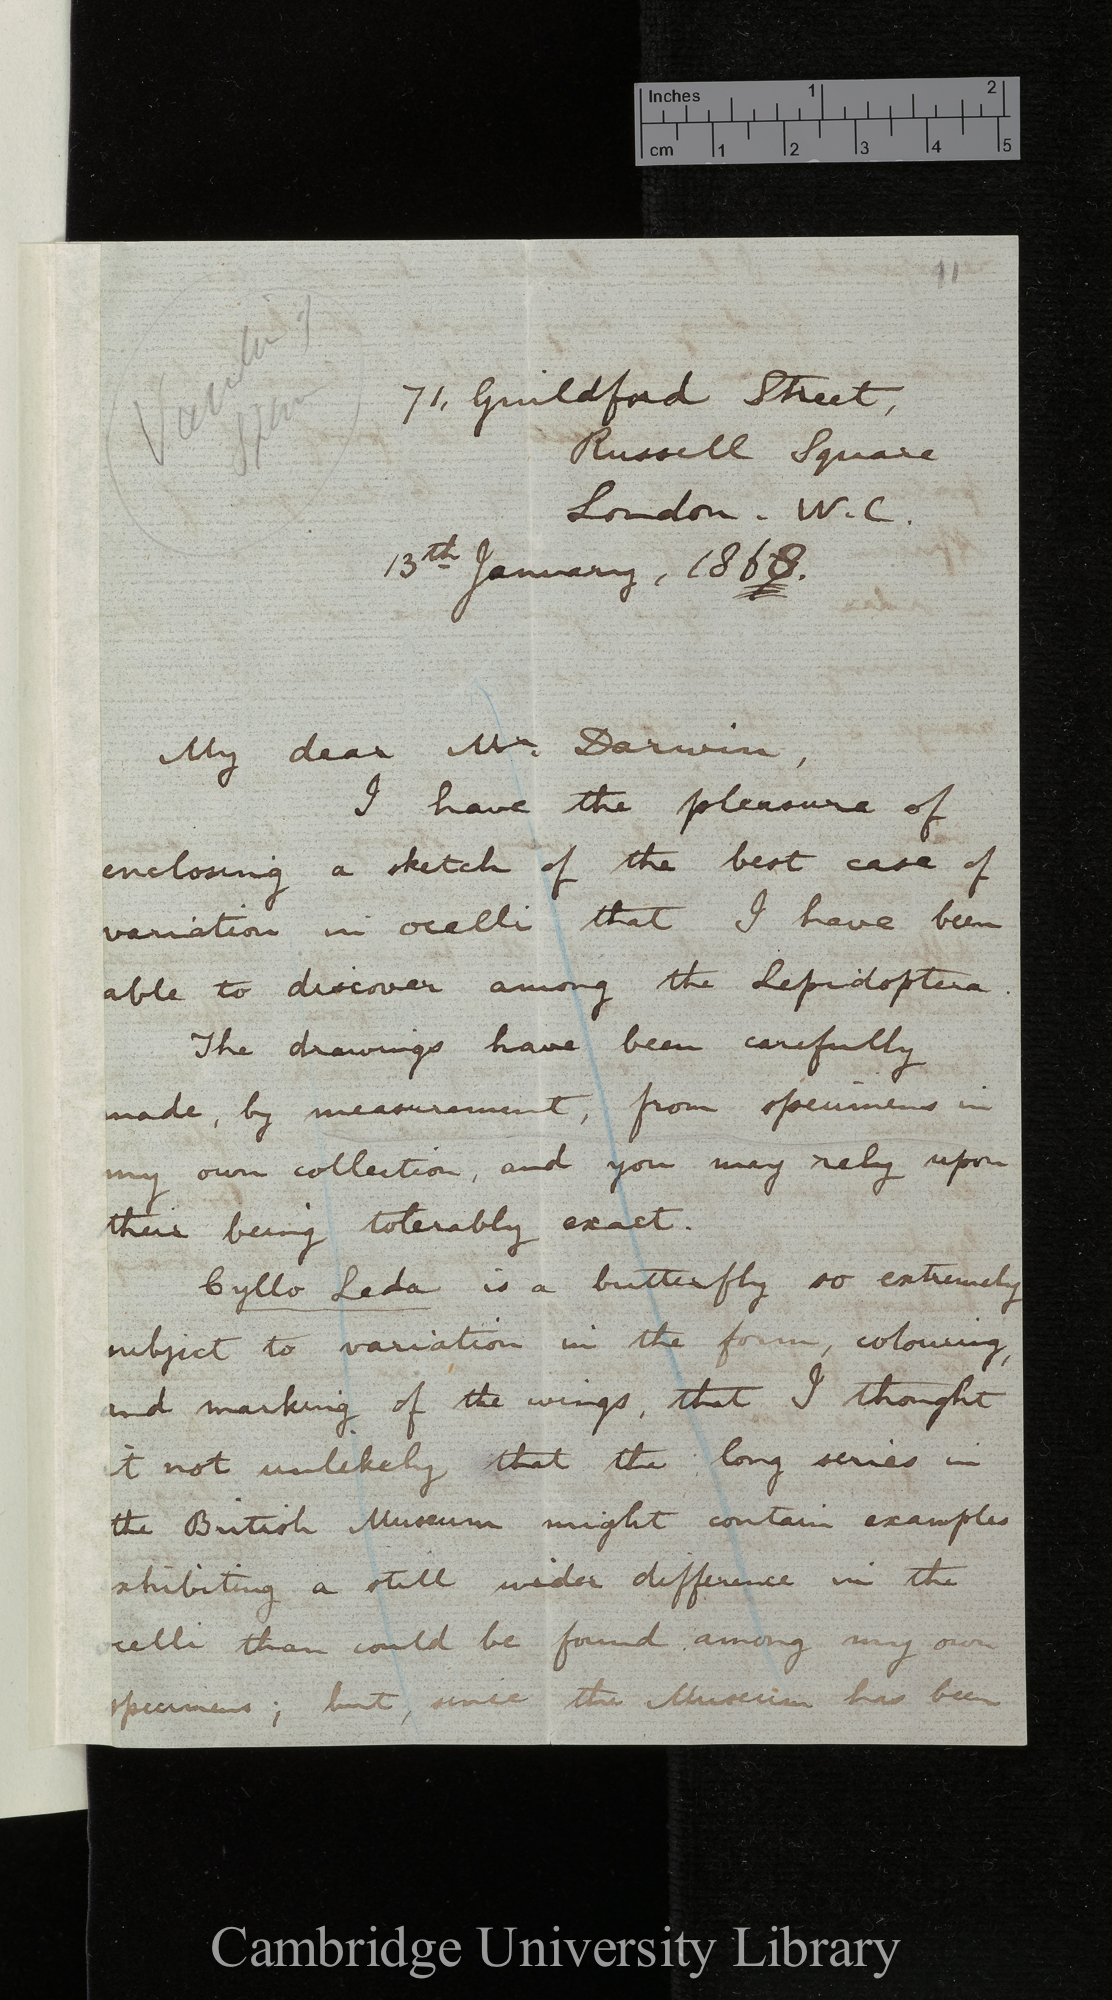 Inches 1 2
cm 1 2 3 4 5
11
71, Guildford Street,
Russell Square
London. W.C.
13th January, 1868.
My dear Mr. Darwin,
I have the pleasure of
enclosing a sketch of the best case of
variation in ocelli that I have been
able to discover among the Lepidoptera.
The drawings have been carefully
made, by measurement, from specimens in
my own collection, and you may rely upon
their being tolerably exact.
Cyllo Leda is a butterfly so extremely
subject to variation in the form, colouring,
and marking of the wings, that I thought
it not unlikely that the long series in
the British Museum might contain examples
exhibiting a still wider difference in the
ocelli than could be found among my own
specimens; but, since the Museum has been
Cambridge University Library